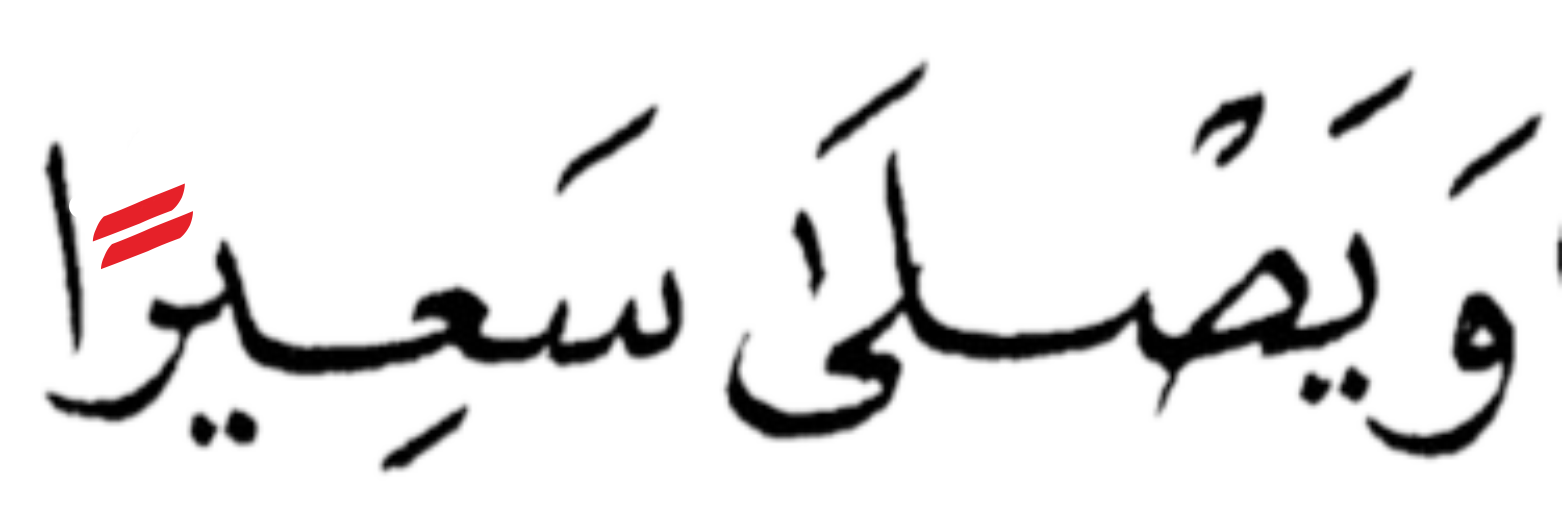 وَيَصْلَىٰ سَعِيرًا